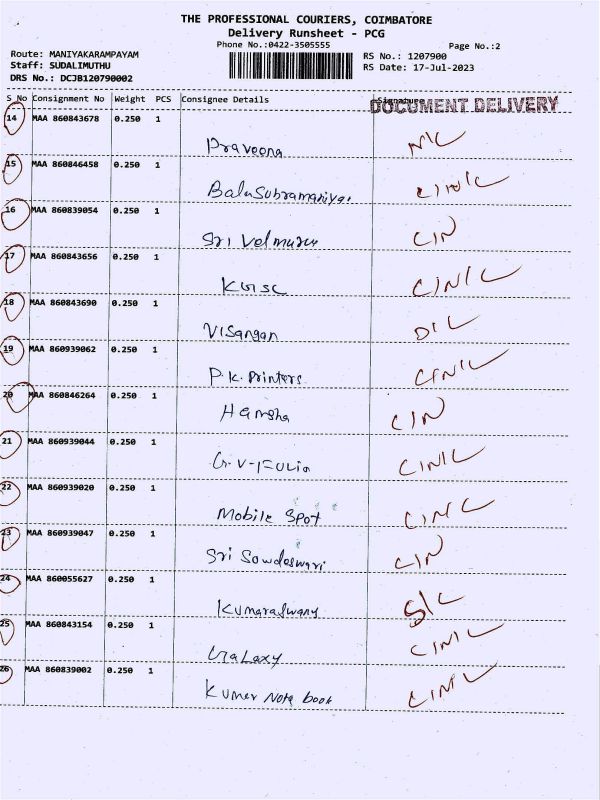 THE PROFESSIONAL COURIERS, COIMBATORE
Delivery Runsheet - PCG
Phone No.:0422-3505555
Page No.:2
Route: MANIYAKARAMPAYAM
RS No.: 1207900
Staff: SUDALIMUTHU
RS Date: 17-Jul-2023
DRS No.: DCJB120790002
S No Consignment No Weight PCS Consignee Details Signature
DOCUMENT DELIVERY
14 MAA 860843678 0.250 1
Praveena N/C
15 MAA 860846458 0.250 1
BalaSubramaniyan C/N/C
16 MAA 860839054 0.250 1
Sri Velmuru C/N
17 MAA 860843656 0.250 1
C/N/C
18 MAA 860843690 0.250 1
Visangan
19 MAA 860939062 0.250 1
P.K. Printers C/N/C
20 MAA 860846264 0.250 1
Hamsha C/N
21 MAA 860939044 0.250 1
C/N/C
22 MAA 860939020 0.250 1
Mobile Spot C/N/C
23 MAA 860939047 0.250 1
Sri Sowdeswari C/N
24 MAA 860055627 0.250 1
Kumaraswamy S/C
25 MAA 860843154 0.250 1
Galaxy C/N/C
26 MAA 860839002 0.250 1
Kumer Note book C/N/C